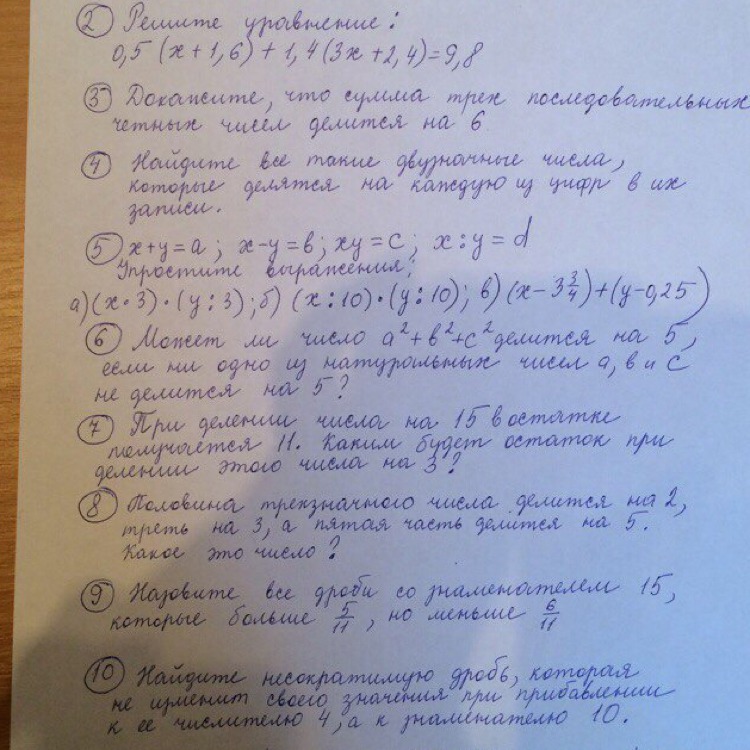 ② Решите уравнение:
0,5 (x+1,6) + 1,4(3x+2,4)=9,8
③ Докажите, что сумма трех последовательных
четных чисел делится на 6
④ Найдите все такие двузначные числа,
которые делятся на каждую из цифр в их
записи.
⑤ x+y=a; x-y=b; xy=c; x:y=d
Упростите выражения:
а) (x·3)·(y:3); б) (x:10)·(y:10); в) (x-3 3/4)+(y-0,25)
⑥ Может ли число a²+b²+c² делится на 5,
если ни одно из натуральных чисел a, b и c
не делится на 5?
⑦ При делении числа на 15 в остатке
получается 11. Каким будет остаток при
делении этого числа на 3?
⑧ Половина трехзначного числа делится на 2,
треть на 3, а пятая часть делится на 5.
Какое это число?
⑨ Назовите все дроби со знаменателем 15,
которые больше 5/11, но меньше 6/11
⑩ Найдите несократимую дробь, которая
не изменит своего значения при прибавлении
к ее числителю 4, а к знаменателю 10.